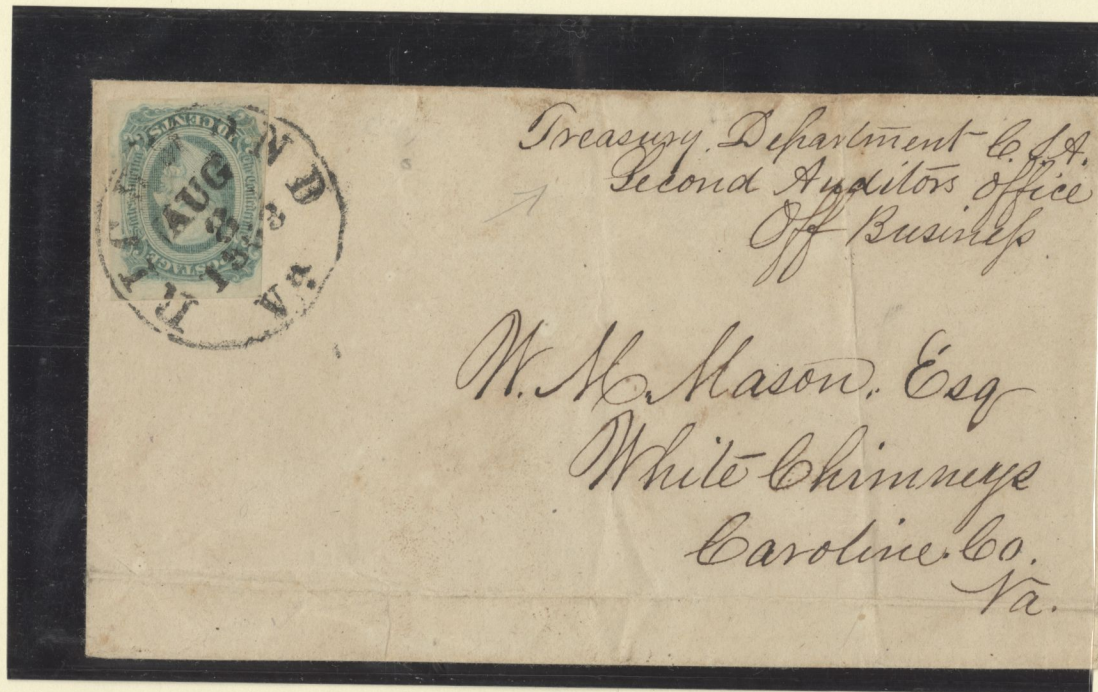 RICHMOND
AUG
8
1863
Va.
CENTS
POSTAGE
Treasury Department C. S. A.
Second Auditors office
Off Business
W. M. Mason. Esq
White Chimneys
Caroline. Co.
Va.